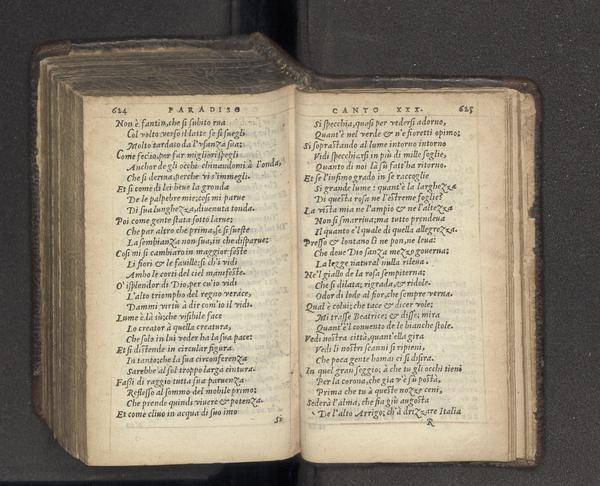 624 PARADISO
Non è fantin, che si subito rua
Col volto verso il latte se si suegli
Molto tardato da l'vsanza sua;
Come fec'io, per far migliori spegli
Anchor de gli occhi chinandomi à l'onda,
Che si deriua, perche vi s'immegli.
Et si come di lei beuue la gronda
De le palpebre mie; cosi mi parue
Di sua lunghezza, diuenuta tonda.
Poi come gente stata sotto larue;
Che par altro che prima, se si sueste
La sembianza non sua, in che disparue;
Cosi mi si cambiaro in maggior feste
Li fiori & le fauille: si ch'i vidi
Ambo le corti del ciel manifeste.
O' isplendor di Dio, per cu'io vidi
L'alto triompho del regno verace,
Dammi virtù à dir com'io il vidi.
Lume è là sù; che visibile face
Lo creator à quella creatura,
Che solo in lui veder ha la sua pace:
Et si distende in circular figura
In tanto; che la sua circonferenza
Sarebbe al sol troppo larga cintura.
Fassi di raggio tutta sua paruenza
Reflesso al sommo del mobile primo;
Che prende quindi viuere & potenza.
Et come cliuo in acqua di suo imo
Si
CANTO XXX. 625
Si specchia, quasi per vedersi adorno,
Quant'è nel verde & n'e fioretti opimo;
Si soprastando al lume intorno intorno
Vidi specchiarsi in più di mille soglie,
Quanto di noi là sù fatt'ha ritorno.
Et se l'infimo grado in se raccoglie
Si grande lume: quant'è la larghezza
Di questa rosa ne l'estreme foglie?
La vista mia ne l'ampio & ne l'altezza
Non si smarriua; ma tutto prendeua
Il quanto e'l quale di quella allegrezza.
Presso & lontano li ne pon, ne leua:
Che doue Dio sanza mezzo gouerna;
La legge natural nulla rileua.
Ne'l giallo de la rosa sempiterna;
Che si dilata; rigrada, & ridole.
Odor di lode al sior, che sempre verna.
Qual è colui; che tace & dicer vole;
Mi trasse Beatrice; & disse; mira
Quant'è'l conuento de le bianche stole.
Vedi nostra città, quant'ella gira
Vedi li nostri scanni si ripieni,
Che poca gente homai ci si disira.
In quel gran seggio; à che tu gli occhi tieni
Per la corona, che gia v'è sù posta,
Prima che tu à queste nozze ceni,
Sederà l'alma, che fia giù augosta
De l'alto Arrigo; ch'à drizzare Italia
R